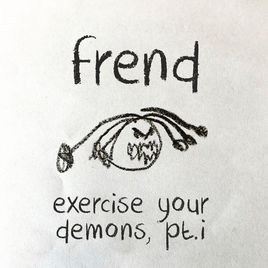 frend
exercise your
demons, pt.i